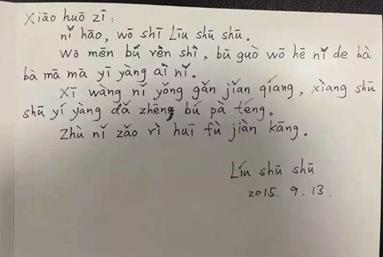 Xiǎo huǒ zǐ:
nǐ hǎo, wǒ shī Líu shū shū.
Wǒ mēn bú rèn shì, bū guò wǒ hē nǐ de bà
bà mā ma yī yàng aì nǐ.
Xī wàng nǐ yǒng gǎn jiān qiáng, xìang shū
shū yí yàng dǎ zhēng bú pà téng.
Zhù nǐ zǎo rì huī fù jiàn kāng.
Líu shū shū
2015. 9. 13.